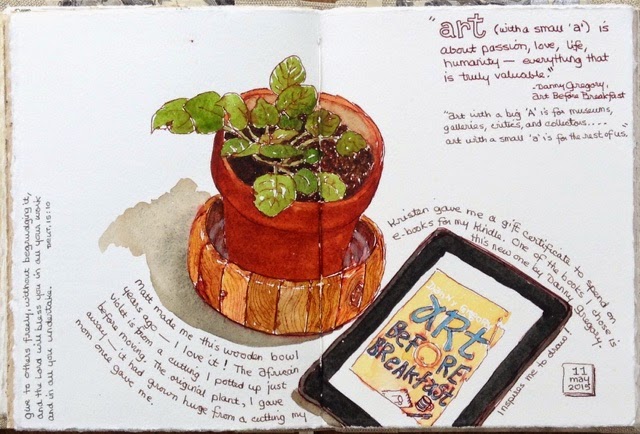 give to others freely, without begrudging it,
and the Lord will bless you in all your work
and in all you undertake.
DEUT. 15:10
Matt made me this wooden bowl
years ago — I love it! The african
violet is from a cutting I potted up just
before moving. The original plant, I gave
away — it had grown huge from a cutting my
mom once gave me.
"art (with a small 'a') is
about passion, love, life,
humanity — everything that
is truly valuable."
-Danny Gregory,
art Before Breakfast
"art with a big 'A' is for museums,
galleries, critics, and collectors....
art with a small 'a' is for the rest of us."
Kristen gave me a gift certificate to spend on
e-books for my Kindle. One of the books I chose is
this new one by Danny Gregory.
Inspires me to draw—
DANNY GREGORY
aRt
BEFORE
BREAKfast
11
may
2015